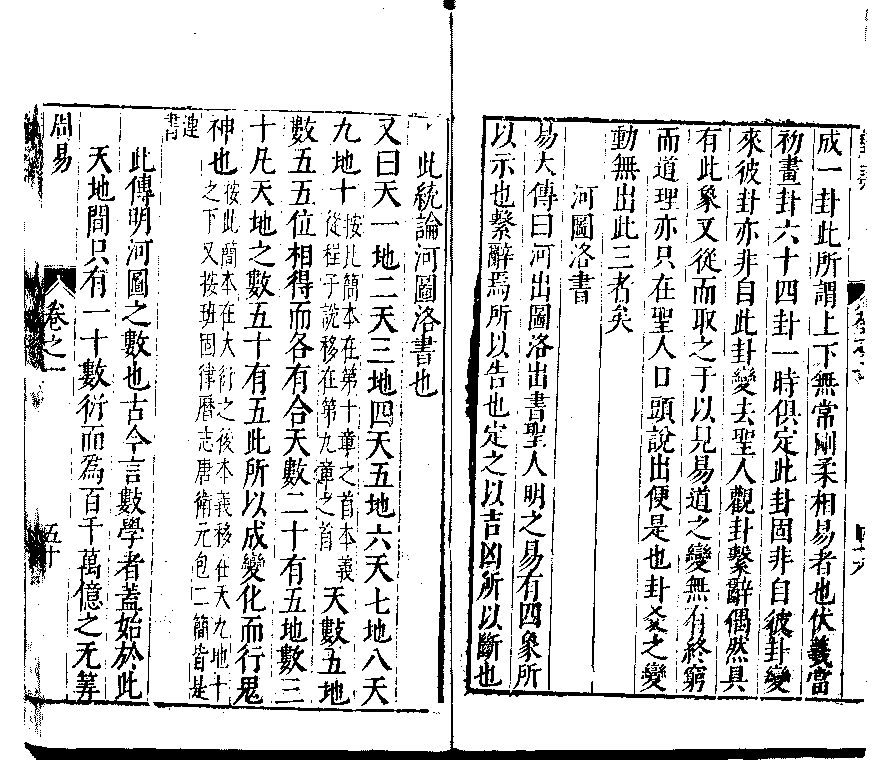 成一卦此所謂上下無常剛柔相易者也伏羲當
初畫卦六十四卦一時俱定此卦固非自彼卦變
來彼卦亦非自此卦變去聖人觀卦繫辭偶然具
有此象又從而取之于以見易道之變無有終窮
而道理亦只在聖人口頭說出便是也卦爻之變
動無出此三者矣
河圖洛書
易大傳曰河出圖洛出書聖人明之易有四象所
以示也繫辭焉所以告也定之以吉凶所以斷也
此統論河圖洛書也
又曰天一地二天三地四天五地六天七地八天
九地十按此簡本在第十章之首本義從程子說移在第九章之首天數五地
數五五位相得而各有合天數二十有五地數三
十凡天地之數五十有五此所以成變化而行鬼
神也按此簡本在大衍之後本義移在天九地十之下又按班固律曆志唐衛元包二簡皆是
連書
此傳明河圖之數也古今言數學者蓋始於此
天地間只有一十數衍而為百千萬億之无筭
周易
卷之一
五十